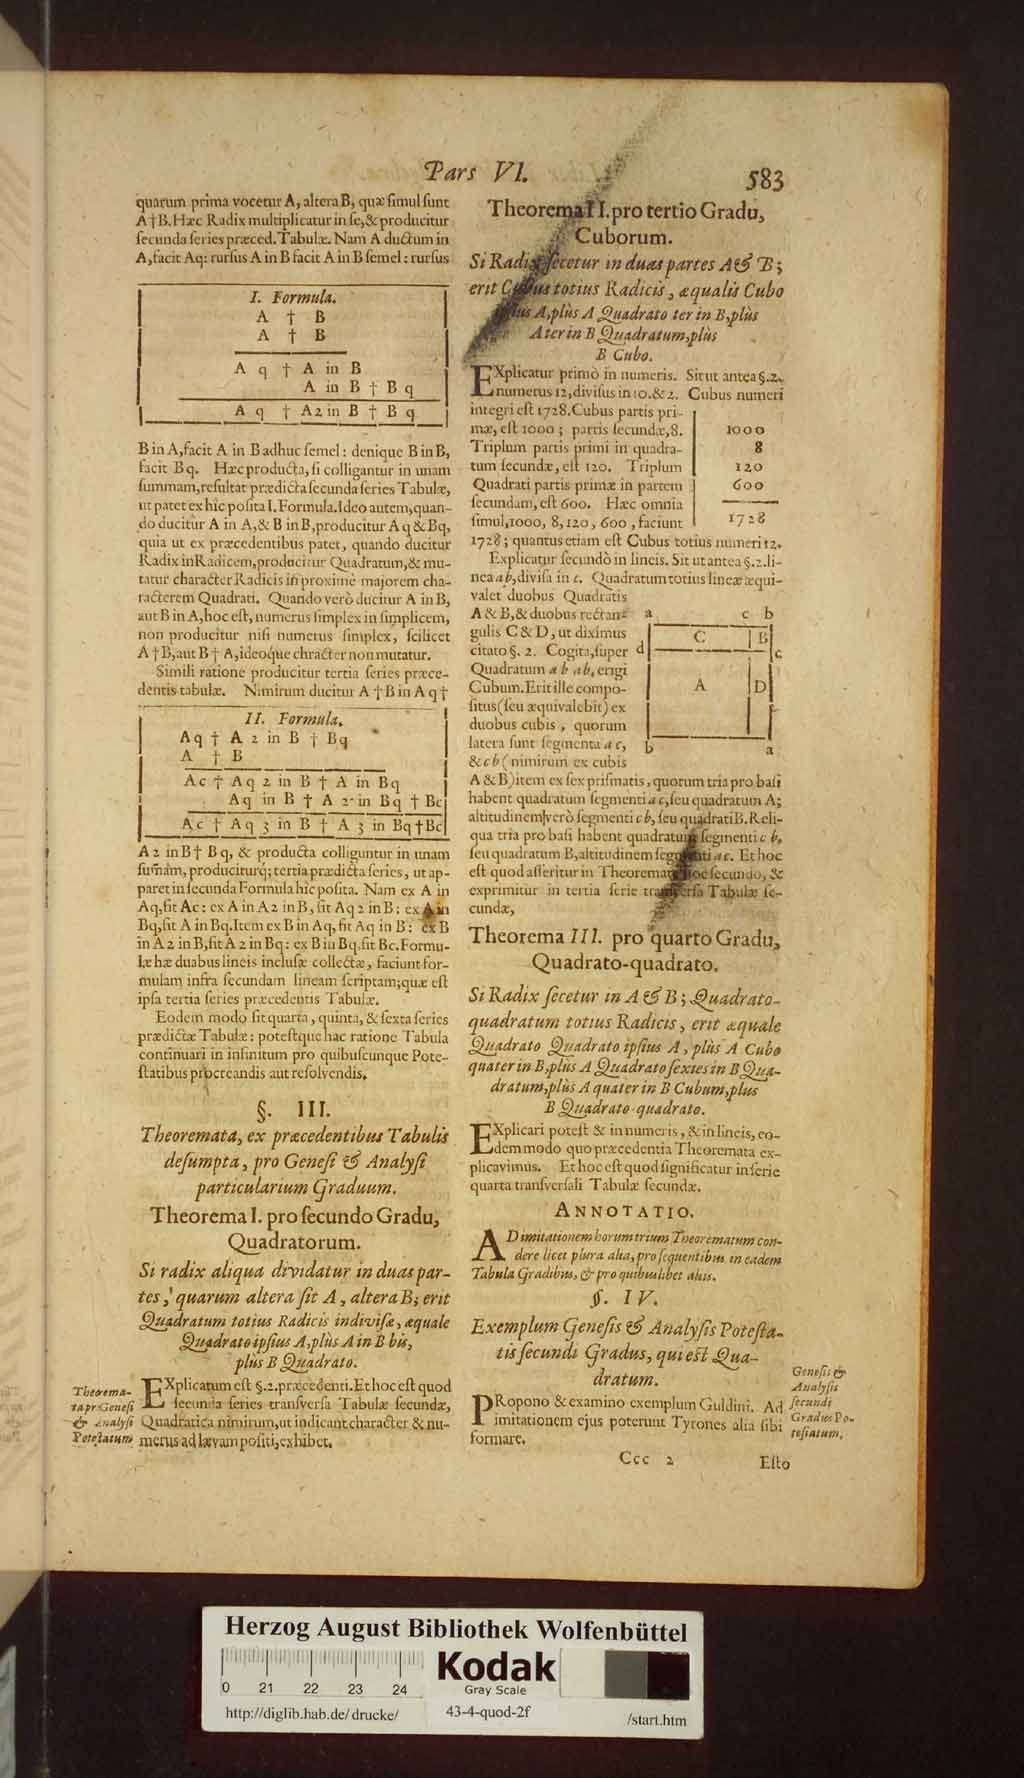 Pars VI.
583
quarum prima vocetur A, altera B, quæ ſimul ſunt
A † B. Hæc Radix multiplicatur in ſe, & producitur
ſecunda ſeries præced. Tabulæ. Nam A ductum in
A, facit Aq: rurſus A in B facit A in B ſemel: rurſus
I. Formula.
A † B
A † B
A q † A in B
A in B † B q
A q † A2 in B † B q
B in A, facit A in B adhuc ſemel: denique B in B,
facit Bq. Hæc producta, ſi colligantur in unam
ſummam, reſultat prædicta ſecunda ſeries Tabulæ,
ut patet ex hic poſita I. Formula. Ideo autem, quan-
do ducitur A in A, & B in B, producitur A q & Bq,
quia ut ex præcedentibus patet, quando ducitur
Radix in Radicem, producitur Quadratum, & mu-
tatur character Radicis in proximè majorem cha-
racterem Quadrati. Quando verò ducitur A in B,
aut B in A, hoc eſt, numerus ſimplex in ſimplicem,
non producitur niſi numerus ſimplex, ſcilicet
A † B, aut B † A, ideoque chracter non mutatur.
Simili ratione producitur tertia ſeries præce-
dentis tabulæ. Nimirum ducitur A † B in A q †
II. Formula.
Aq † A 2 in B † Bq
A † B
Ac † Aq 2 in B † A in Bq
Aq in B † A 2 in Bq † Bc
Ac † Aq 3 in B † A 3 in Bq † Bc
A 2 in B † Bq, & producta colliguntur in unam
ſum̃am, produciturq; tertia prædicta ſeries, ut ap-
paret in ſecunda Formula hic poſita. Nam ex A in
Aq, fit Ac: ex A in A 2 in B, fit Aq 2 in B: ex A in
Bq, fit A in Bq. Item ex B in Aq, fit Aq in B: ex B
in A 2 in B, fit A 2 in Bq: ex B in Bq. fit Bc. Formu-
læ hæ duabus lineis incluſæ collectæ, faciunt for-
mulam infra ſecundam lineam ſcriptam; quæ eſt
ipſa tertia ſeries præcedentis Tabulæ.
Eodem modo fit quarta, quinta, & ſexta ſeries
prædictæ Tabulæ: poteſtque hac ratione Tabula
continuari in infinitum pro quibuſcunque Pote-
ſtatibus procreandis aut reſolvendis.
§. III.
Theoremata, ex præcedentibus Tabulis
deſumpta, pro Geneſi & Analyſi
particularium Graduum.
Theorema I. pro ſecundo Gradu,
Quadratorum.
Si radix aliqua dividatur in duas par-
tes, quarum altera ſit A, altera B; erit
Quadratum totius Radicis indiviſæ, æquale
Quadrato ipſius A, plùs A in B bis,
plùs B Quadrato.
Theorema-
ta pr Geneſi
& Analyſi
Poteſtatum
EXplicatum eſt §. 2. præcedenti. Et hoc eſt quod
ſecunda ſeries tranſverſa Tabulæ ſecundæ,
Quadratica nimirum, ut indicant character & nu-
merus ad lævam poſiti, exhibet.
Theorema II. pro tertio Gradu,
Cuborum.
Si Radix ſecetur in duas partes A & B;
erit Cubus totius Radicis, æqualis Cubo
ipſius A, plùs A Quadrato ter in B, plùs
A ter in B Quadratum, plùs
B Cubo.
EXplicatur primò in numeris. Sit ut antea §. 2.
numerus 12, diviſus in 10. & 2. Cubus numeri
integri eſt 1728. Cubus partis pri-
mæ, eſt 1000; partis ſecundæ, 8.
Triplum partis primi in quadra-
tum ſecundæ, eſt 120. Triplum
Quadrati partis primæ in partem
ſecundam, eſt 600. Hæc omnia
ſimul, 1000, 8, 120, 600, faciunt
1000
8
120
600
1728
1728; quantus etiam eſt Cubus totius numeri 12.
Explicatur ſecundò in lineis. Sit ut antea §. 2. li-
nea ab, diviſa in c. Quadratum totius lineæ æqui-
valet duobus Quadratis
A & B, & duobus rectan-
gulis C & D, ut diximus
citato §. 2. Cogita, ſuper
Quadratum ab ab, erigi
Cubum. Erit ille compo-
ſitus (ſeu æquivalebit) ex
duobus cubis, quorum
latera ſunt ſegmenta ac,
& cb (nimirum ex cubis
a c b
C B
d c
A D
b a
A & B) item ex ſex priſmatis, quorum tria pro baſi
habent quadratum ſegmenti ac, ſeu quadratum A;
altitudinem verò ſegmenti cb, ſeu quadrati B. Reli-
qua tria pro baſi habent quadratum ſegmenti cb,
ſeu quadratum B, altitudinem ſegmenti ac. Et hoc
eſt quod aſſeritur in Theoremate hoc ſecundo, &
exprimitur in tertia ſerie tranſverſa Tabulæ ſe-
cundæ,
Theorema III. pro quarto Gradu,
Quadrato-quadrato.
Si Radix ſecetur in A & B; Quadrato-
quadratum totius Radicis, erit æquale
Quadrato Quadrato ipſius A, plùs A Cubo
quater in B, plùs A Quadrato ſexies in B Qua-
dratum, plùs A quater in B Cubum, plus
B Quadrato-quadrato.
EXplicari poteſt & in numeris, & in lineis, eo-
dem modo quo præcedentia Theoremata ex-
plicavimus. Et hoc eſt quod ſignificatur in ſerie
quarta tranſverſali Tabulæ ſecundæ.
ANNOTATIO.
AD imitationem horum trium Theorematum con-
dere licet plura alia, pro ſequentibus in eadem
Tabula Gradibus, & pro quibuslibet aliis.
§. IV.
Exemplum Geneſis & Analyſis Poteſta-
tis ſecundi Gradus, qui eſt Qua-
dratum.
PRopono & examino exemplum Guldini. Ad
imitationem ejus poterunt Tyrones alia ſibi
formare.
Geneſis &
Analyſis
ſecundi
Gradus Po-
teſtatum.
Ccc 2
Eſto
Herzog August Bibliothek Wolfenbüttel
0 21 22 23 24
Kodak
Gray Scale
http://diglib.hab.de/drucke/
43-4-quod-2f
/start.htm